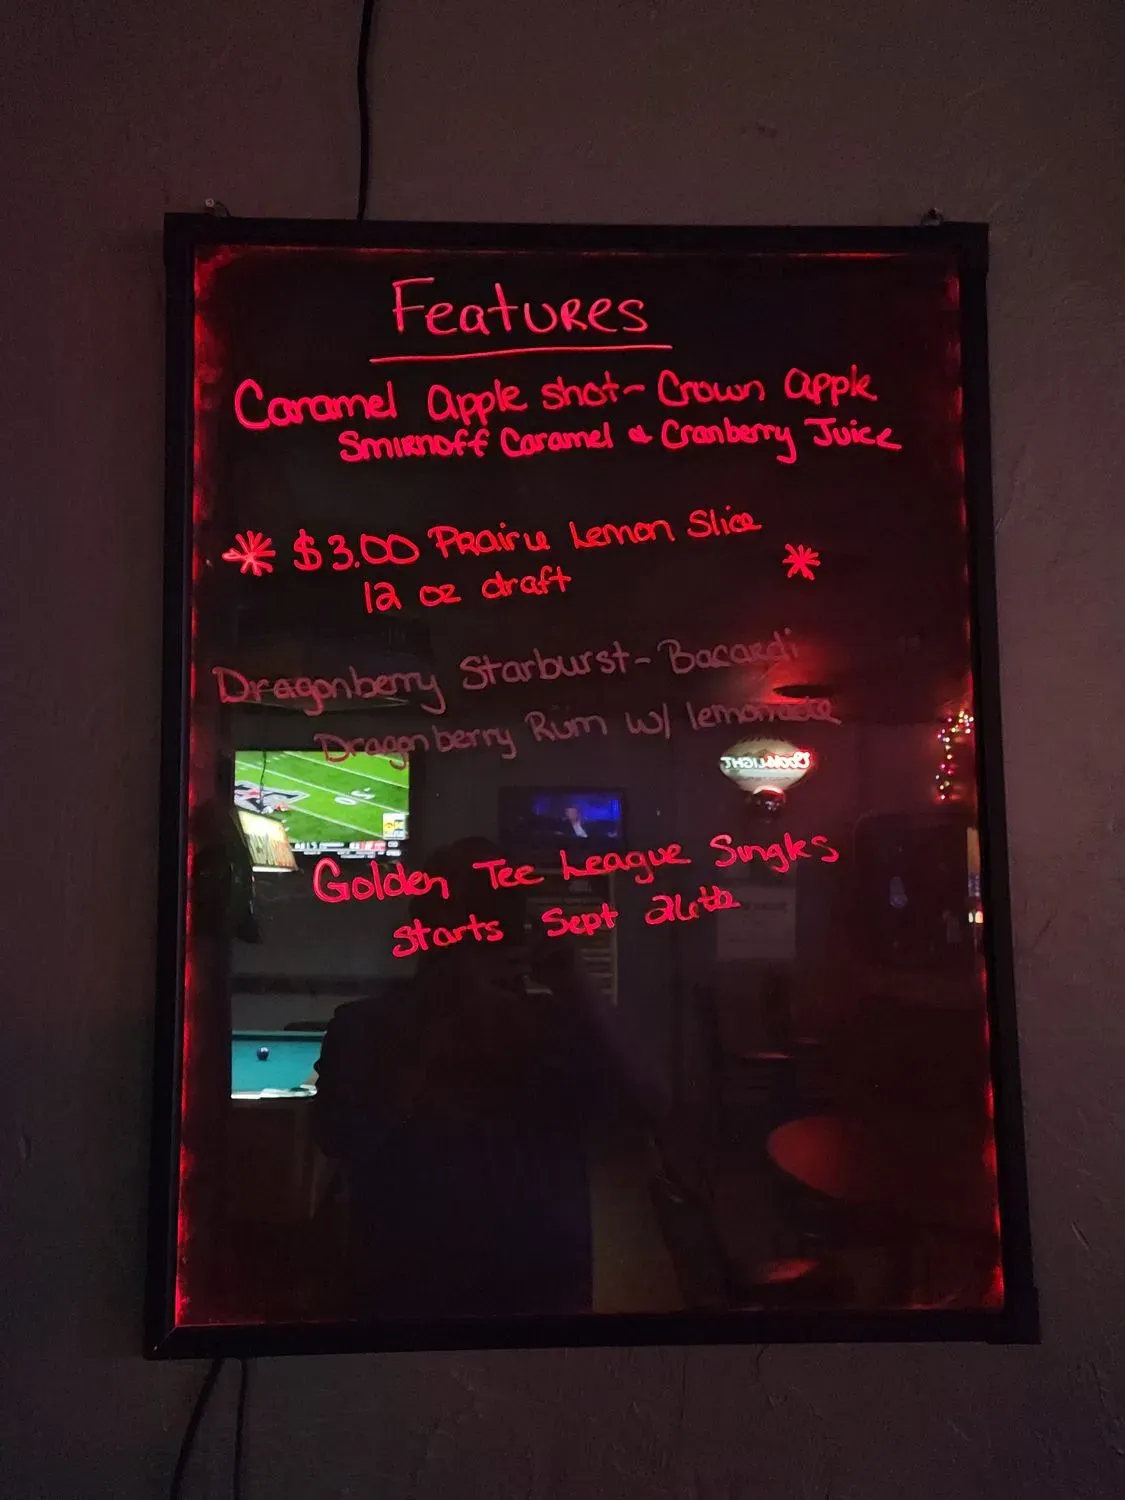 Features
Caramel Apple shot- Crown Apple
Smirnoff Caramel & Cranberry Juice
* $3.00 Prairie Lemon Slice *
12 oz draft
Dragonberry Starburst- Bacardi
Dragonberry Rum w/ lemonade
COORS LIGHT
Golden Tee League Singles
starts Sept 26th